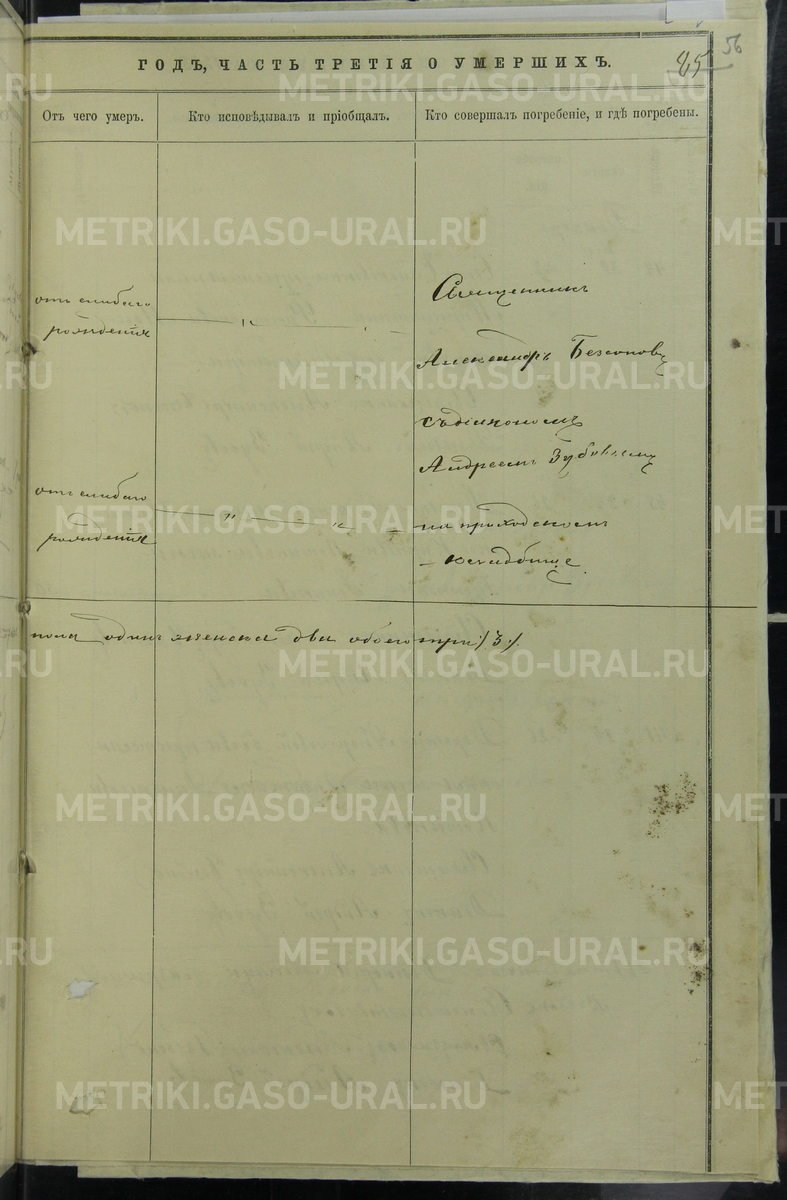 56
ГОДЪ, ЧАСТЬ ТРЕТІЯ О УМЕРШИХЪ.
85
Отъ чего умеръ.
Кто исповѣдывалъ и пріобщалъ.
Кто совершалъ погребеніе, и гдѣ погребены.
отъ слабаго
рожденія
Священникъ
Александръ Безсоновъ
съ діакономъ
Андреемъ
отъ слабаго
рожденія
на приходскомъ
кладбище.
пола одинъ женска два обоего три /3/.
METRIKI.GASO-URAL.RU